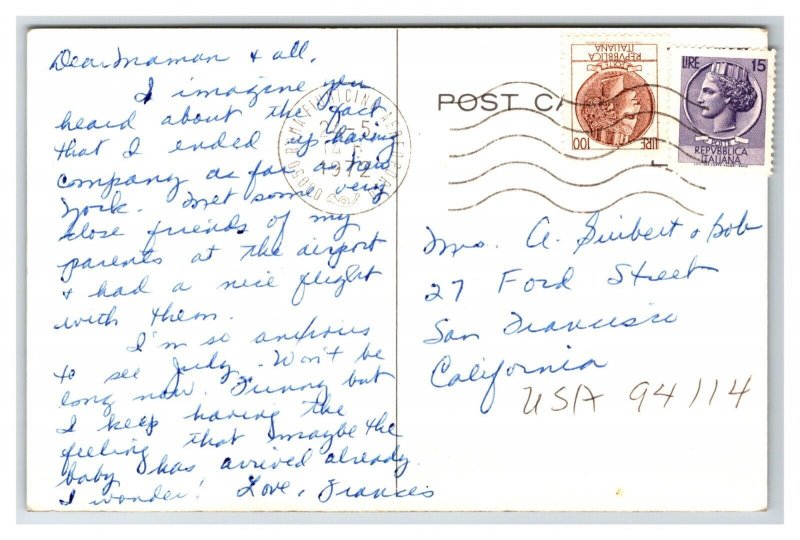 Dear Maman & all,
I imagine you
heard about the fact
that I ended up having
company as far as New
York. Met some very
close friends of my
parents at the airport
& had a nice flight
with them.
I'm so anxious
to see Judy. Won't be
long now. Funny but
I keep having the
feeling that maybe the
baby has arrived already.
I wonder! Love, Frances
POST CA
REPVBBLICA
ITALIANA
LIRE 100
LIRE 15
POSTE
REPVBBLICA
ITALIANA
1972
00050
Mrs. A. Siibert & Bob
27 Ford Street
San Francisco
California
USA 94114